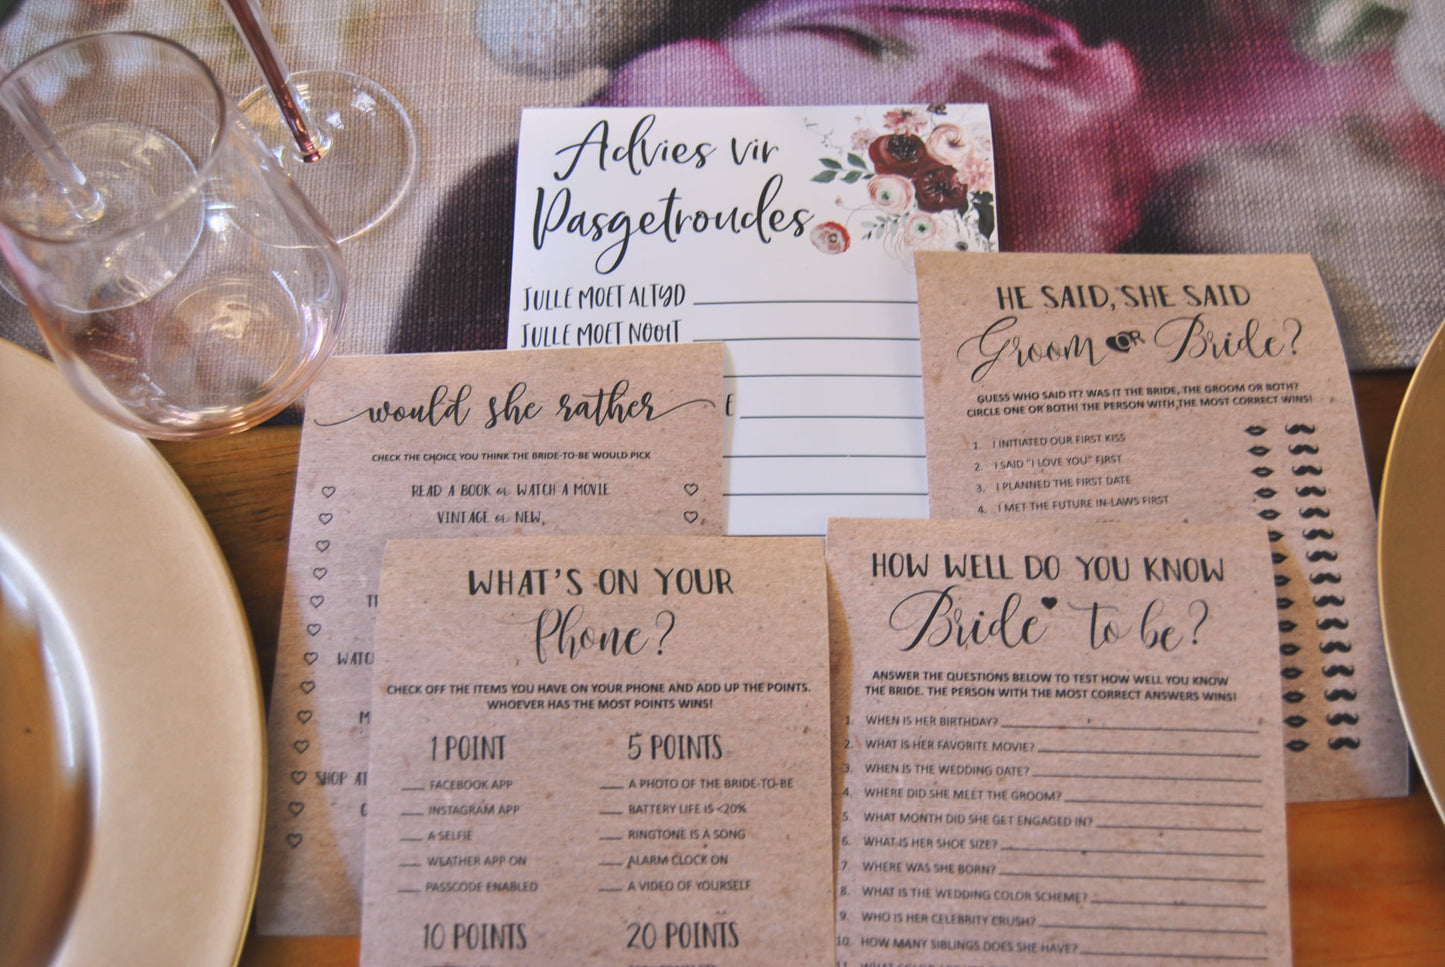 Advies vir
Pasgetroudes
JULLE MOET ALTYD
JULLE MOET NOOIT
E
HE SAID, SHE SAID
Groom OR Bride?
GUESS WHO SAID IT? WAS IT THE BRIDE, THE GROOM OR BOTH?
CIRCLE ONE OR BOTH! THE PERSON WITH THE MOST CORRECT WINS!
1. I INITIATED OUR FIRST KISS
2. I SAID "I LOVE YOU" FIRST
3. I PLANNED THE FIRST DATE
4. I MET THE FUTURE IN-LAWS FIRST
would she rather
CHECK THE CHOICE YOU THINK THE BRIDE-TO-BE WOULD PICK
READ A BOOK or WATCH A MOVIE
VINTAGE or NEW
WATC
SHOP AT
WHAT'S ON YOUR
Phone?
CHECK OFF THE ITEMS YOU HAVE ON YOUR PHONE AND ADD UP THE POINTS.
WHOEVER HAS THE MOST POINTS WINS!
1 POINT
FACEBOOK APP
INSTAGRAM APP
A SELFIE
WEATHER APP ON
PASSCODE ENABLED
5 POINTS
A PHOTO OF THE BRIDE-TO-BE
BATTERY LIFE IS <20%
RINGTONE IS A SONG
ALARM CLOCK ON
A VIDEO OF YOURSELF
10 POINTS
20 POINTS
HOW WELL DO YOU KNOW
Bride to be?
ANSWER THE QUESTIONS BELOW TO TEST HOW WELL YOU KNOW
THE BRIDE. THE PERSON WITH THE MOST CORRECT ANSWERS WINS!
1. WHEN IS HER BIRTHDAY?
2. WHAT IS HER FAVORITE MOVIE?
3. WHEN IS THE WEDDING DATE?
4. WHERE DID SHE MEET THE GROOM?
5. WHAT MONTH DID SHE GET ENGAGED IN?
6. WHAT IS HER SHOE SIZE?
7. WHERE WAS SHE BORN?
8. WHAT IS THE WEDDING COLOR SCHEME?
9. WHO IS HER CELEBRITY CRUSH?
10. HOW MANY SIBLINGS DOES SHE HAVE?
11.